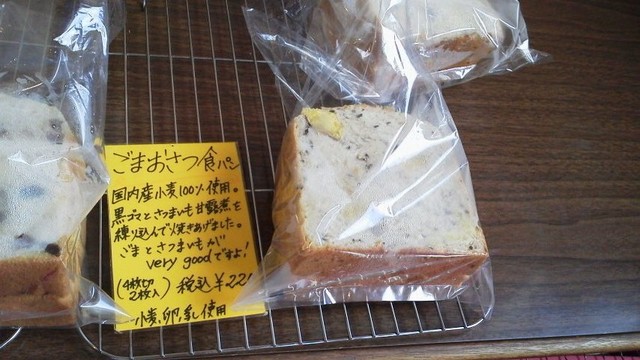 ごまおさつ食パン
国内産小麦100%使用。
黒ゴマとさつまいも甘露煮を
練り込んで焼きあげました。
ごまとさつまいもが
very goodですよ!
(4枚切 2枚入) 税込¥22
小麦、卵、乳使用